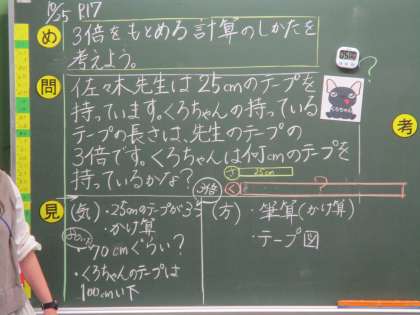 10/25 P.17
め 3倍をもとめる計算のしかたを
考えよう。
問 佐々木先生は25cmのテープを
持っています。くろちゃんの持っている
テープの長さは、先生のテープの
3倍です。くろちゃんは何cmのテープを
持っているかな?
?
くろちゃん
考
さ 25cm
3倍 く ?
見 (気)・25cmのテープが3つ
かけ算
・70cmぐらい?
・くろちゃんのテープは
100cm以下
(方)・筆算(かけ算)
・テープ図